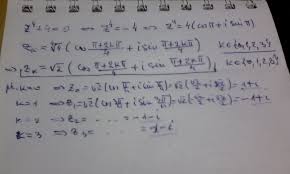 z⁴+4=0 ⇔ z⁴=-4 ⇔ z⁴=4(cosπ+i sinπ)
Zκ=⁴√4 (cos (π+2kπ)/4 + i sin (π+2kπ)/4) k∈{0,1,2,3}
⇔ Zκ=√2 (cos (π+2kπ)/4 + i sin (π+2kπ)/4), k∈{0,1,2,3}
k=0 ⇔ Z₀=√2(cos π/4 + i sin π/4)=√2(√2/2 + i √2/2)=1+i
k=1 ⇔ Z₁=√2(cos 3π/4 + i sin 3π/4)=√2(-√2/2 + i √2/2)=-1+i
k=2 ⇔ Z₂= ... =-1-i
k=3 ⇔ Z₃= ... =1-i